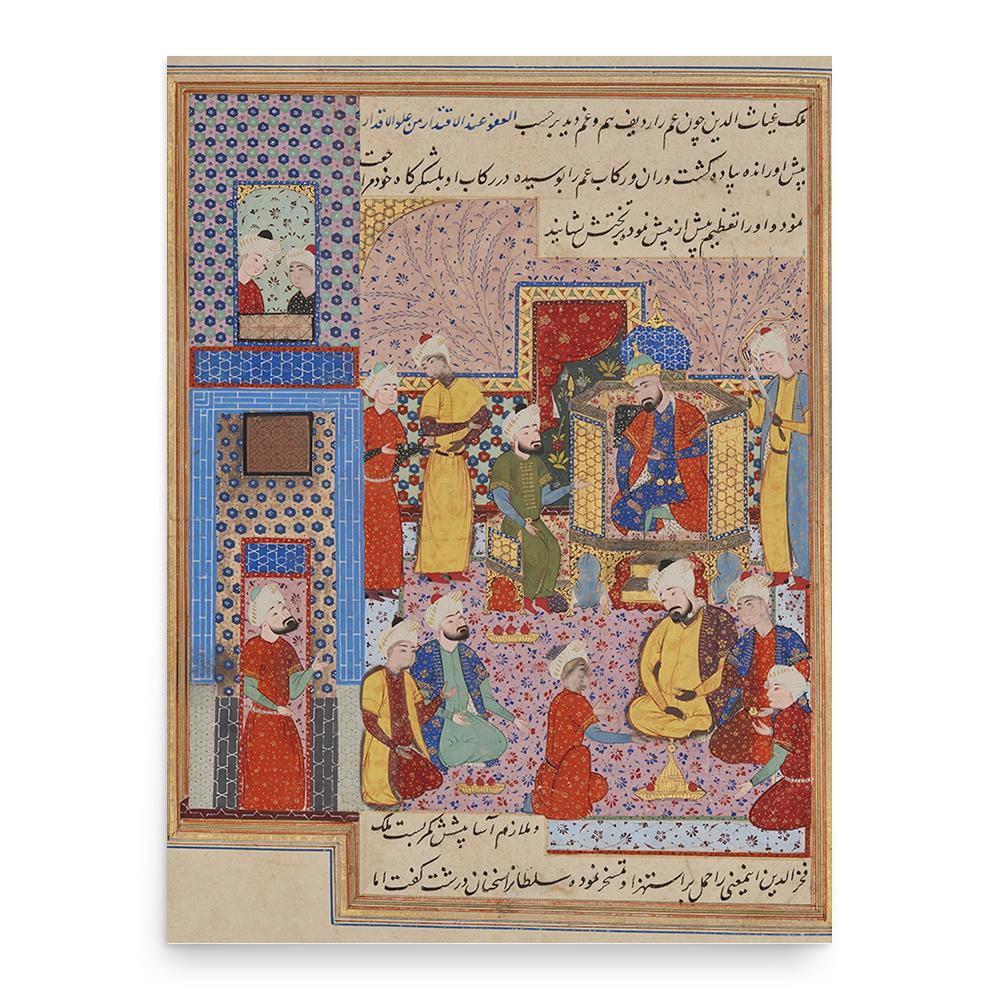 ملک غیاث الدین چون عم را ردیف هم و غم دید بر حسب العفو عند الاقتدار من علو الاقدار
پیش او رانده پیاده گشت و ران و رکاب عم را بوسیده در رکاب او بلشکرگاه خود مراجعت
نمود و او را تعظیم بیش از پیش نموده بر تختش نشانید
و ملازم آسا پیشش کمر بست ملک
فخر الدین اینمعنی را حمل بر استهزا و تمسخر نموده سلطانرا سخنان درشت گفت اما